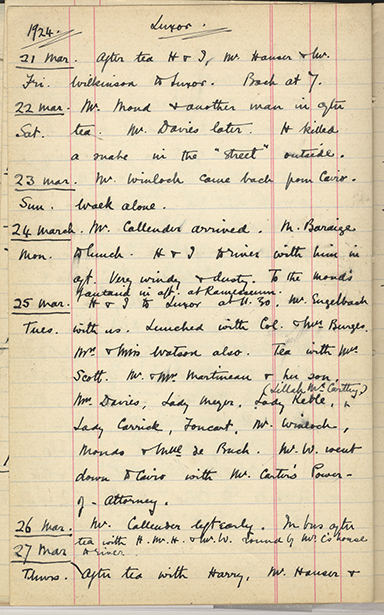 1924. Luxor.
21 Mar. After tea H & I, Mr. Hauser & Mr.
Fri. Wilkinson to Luxor. Back at 7.
22 Mar. Mr. Mond & another man in after
Sat. tea. Mr. Davies later. H killed
a snake in the "street" outside.
23 Mar. Mr. Winlock came back from Cairo.
Sun. Walk alone.
24 March. Mr. Callender arrived. M. Baraize
Mon. to lunch. H & I to river with him in
aft. Very windy & dusty. To the Monds
fantasia in aft. at Ramesseum.
25 Mar. H & I to Luxor at 11.30. Mr. Engelbach
Tues. with us. Lunched with Col. & Mrs Burges.
Mr. & Miss Watson also. Tea with Mrs
Scott. Mr. & Mrs. Martineau & her son,
(Lillah McCarthy)
Mrs Davies, Lady Meyer, Lady Keble,
Lady Carrick, Foucart, Mr. Winlock,
Monds & Mlle de Bruck. Mr. W. went
down to Cairo with Mr. Carter's Power-
of-Attorney.
26 Mar. Mr. Callender left early. after
tea with H. Mr. H. & Mr. W. round by Mr C's house
27 Mar & river.
Thurs. After tea with Harry, Mr. Hauser &